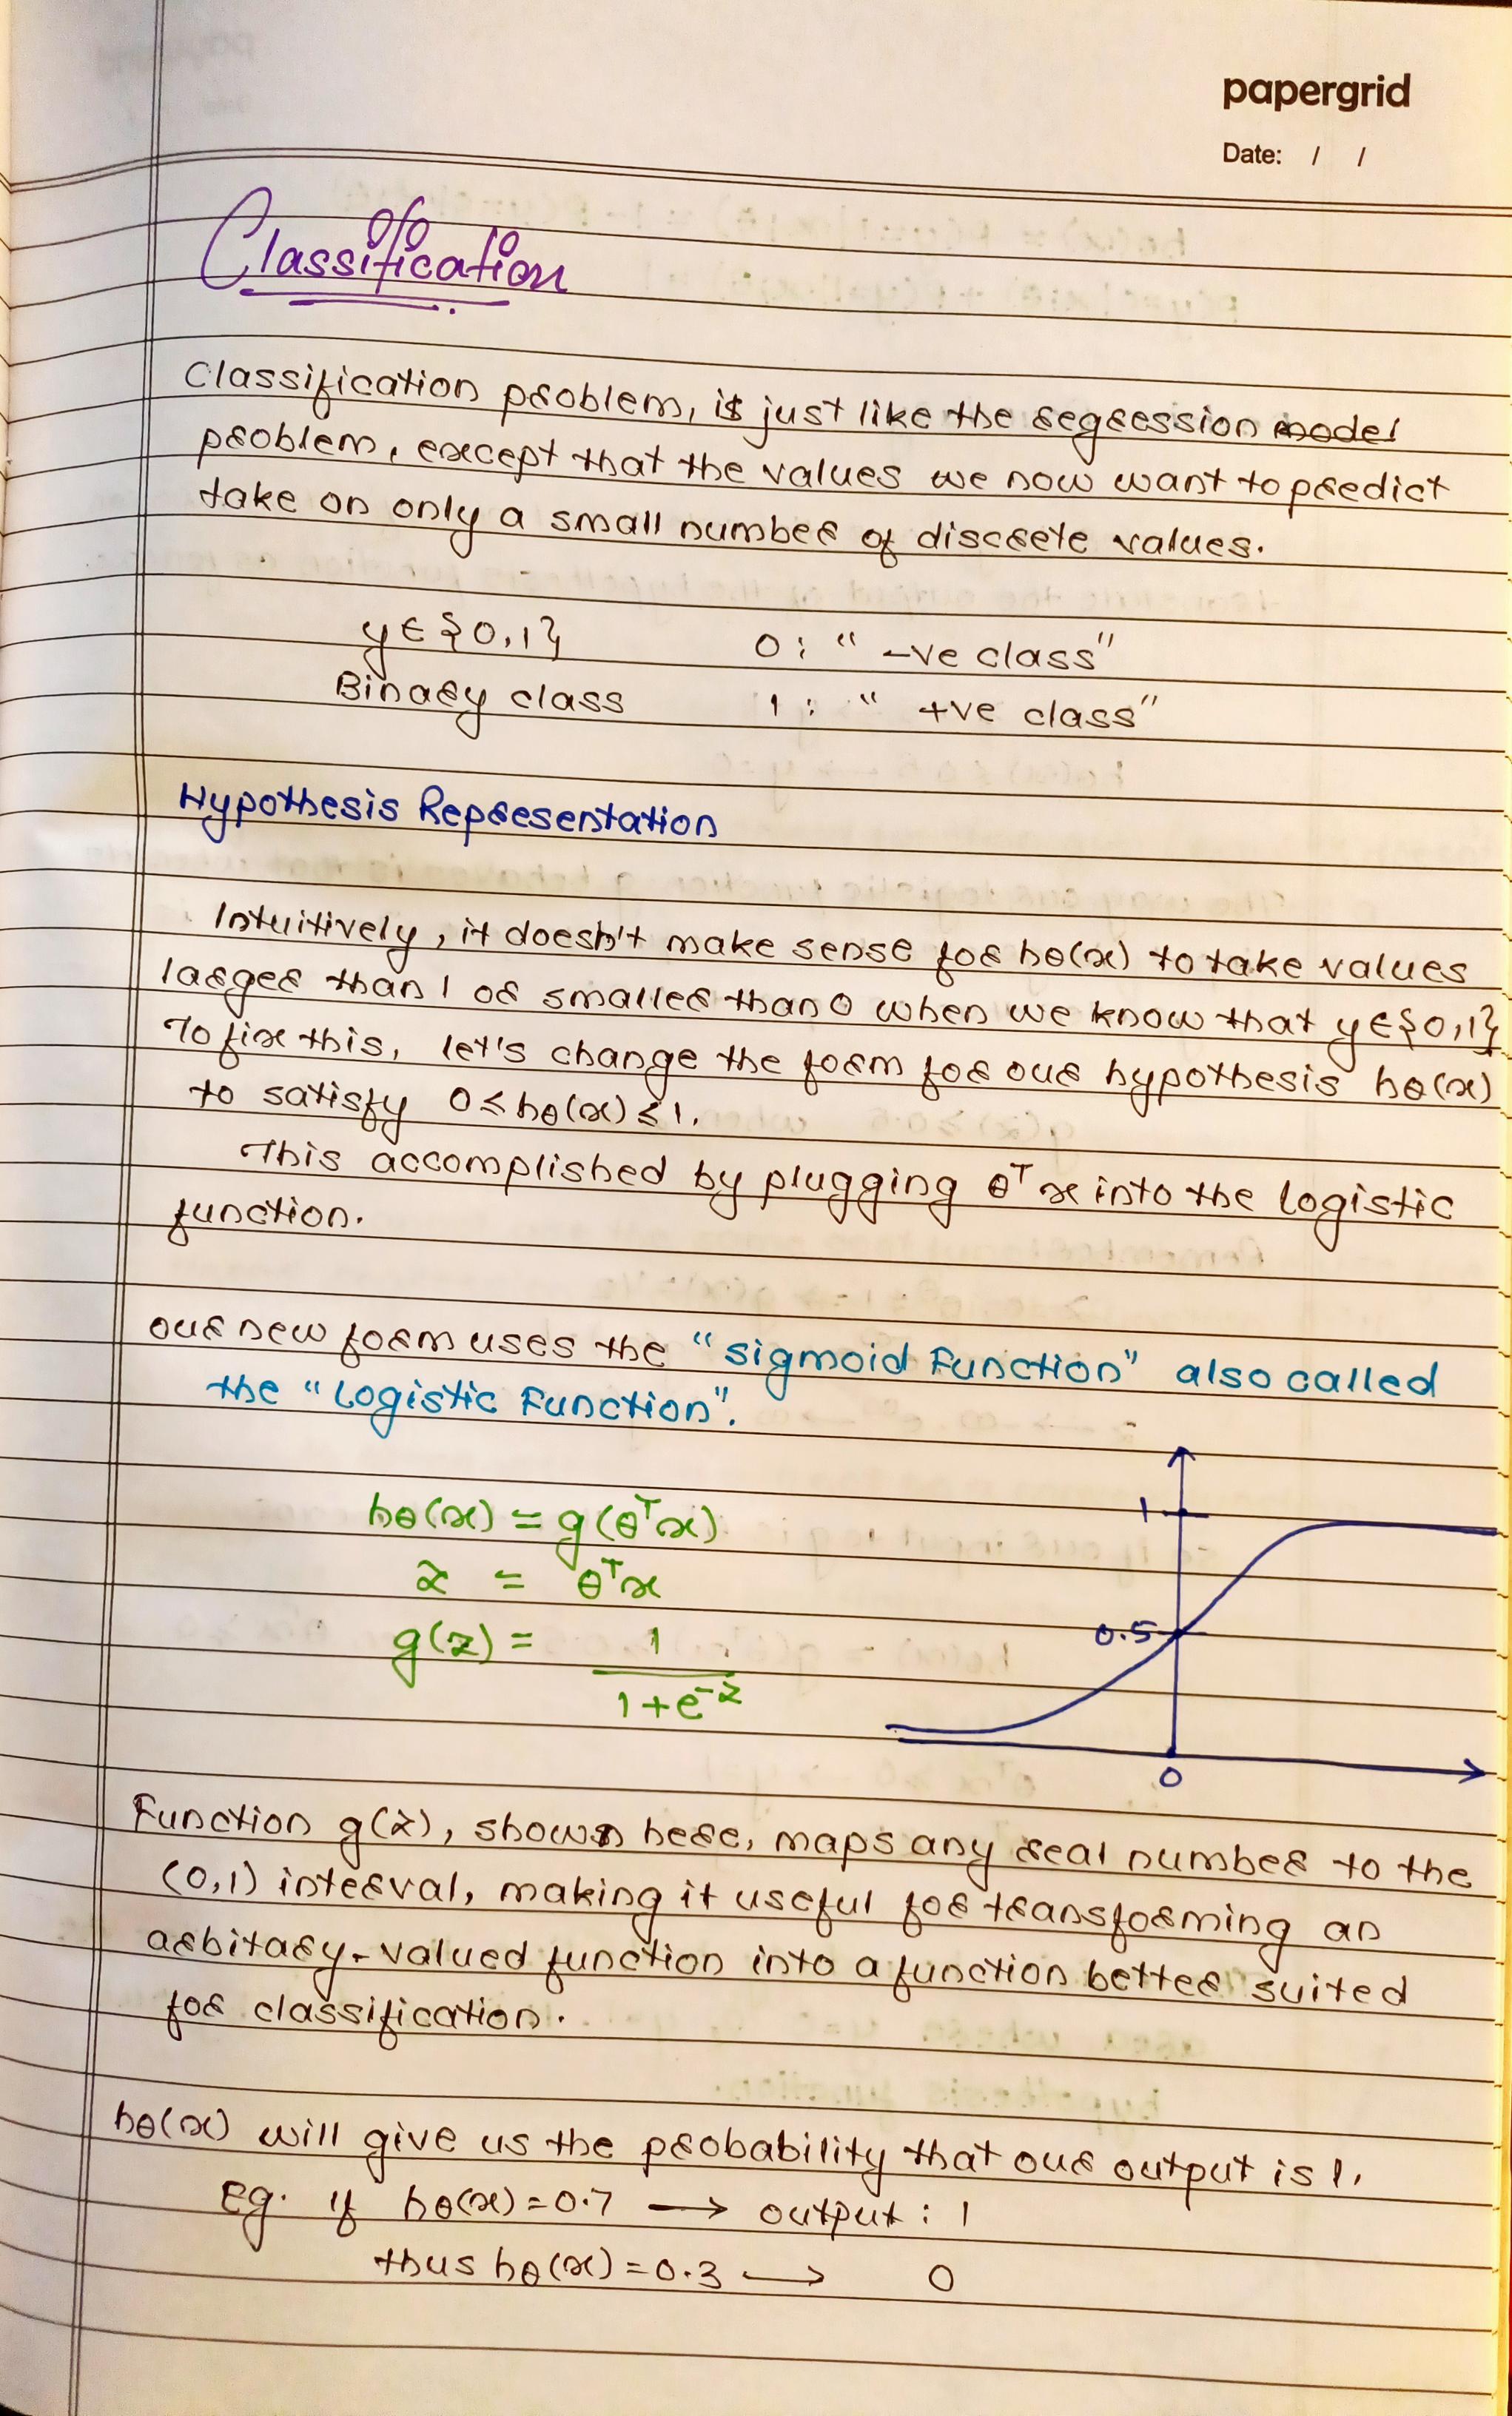 papergrid
Date: / /
Classification
Classification problem, is just like the regression model
problem, except that the values we now want to predict
take on only a small number of discrete values.
y ∈ {0,1} 0: " -ve class"
Binary class 1: " +ve class"
Hypothesis Representation
Intuitively, it doesn't make sense for hθ(x) to take values
larger than 1 or smaller than 0 when we know that y ∈ {0,1}
To fix this, let's change the form for our hypothesis hθ(x)
to satisfy 0 ≤ hθ(x) ≤ 1.
This accomplished by plugging θᵀx into the logistic
function.
our new form uses the "sigmoid Function" also called
the "Logistic Function".
hθ(x) = g(θᵀx)
z = θᵀx
g(z) = 1
1+e⁻ᶻ
1
0.5
0
Function g(z), shown here, maps any real number to the
(0,1) interval, making it useful for transforming an
arbitary-valued function into a function better suited
for classification.
hθ(x) will give us the probability that our output is 1.
Eg. if hθ(x) = 0.7 → output : 1
thus hθ(x) = 0.3 → 0